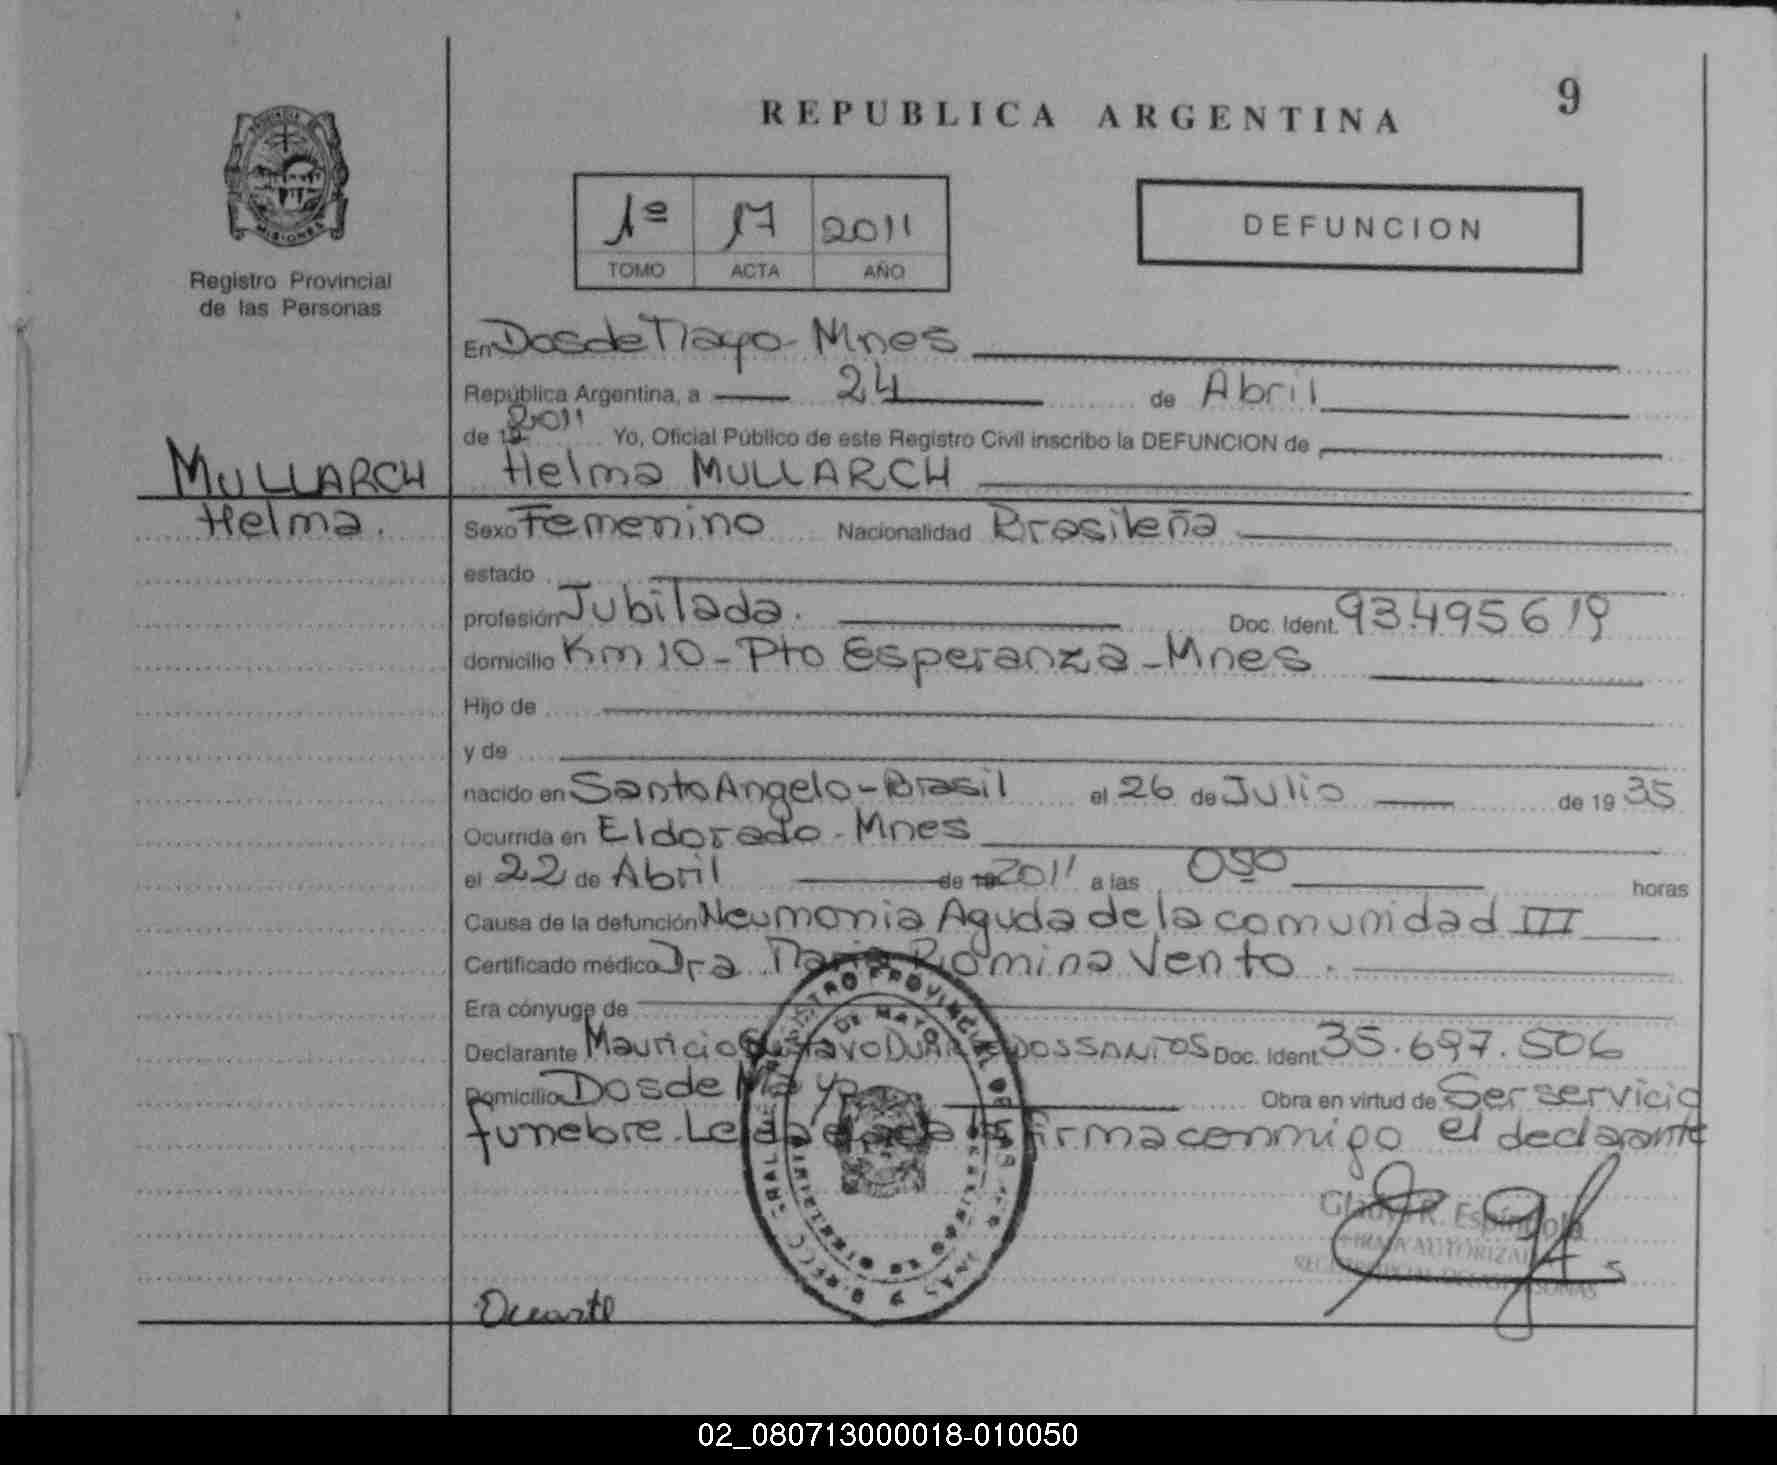 9
REPUBLICA ARGENTINA
1º 17 2011
TOMO ACTA AÑO
DEFUNCION
MISIONES
Registro Provincial
de las Personas
En Dos de Mayo - Mnes
República Argentina, a 24 de Abril
de 19 2011 Yo, Oficial Público de este Registro Civil inscribo la DEFUNCION de
MULLARCH
Helma MULLARCH
Helma.
Sexo Femenino Nacionalidad Brasileña
estado
profesión Jubilada. Doc. Ident. 93.495619
domicilio Km 10 - Pto Esperanza - Mnes
Hijo de
y de
nacido en Santo Angelo - Brasil el 26 de Julio de 19 35
Ocurrida en Eldorado - Mnes
el 22 de Abril de 19 2011 a las 050 horas
Causa de la defunción Neumonia Aguda de la comunidad III
Certificado médico Dra Maria Romina Vento.
Era cónyuge de
Declarante Mauricio Gustavo DOSSANTOS Doc. Ident. 35.697.506
Domicilio Dos de Mayo Obra en virtud de Ser servicio
funebre. Leida firma conmigo el declarante
DE MAYO
Gladys R. Espíndola
FIRMA AUTORIZADA
02_080713000018-010050